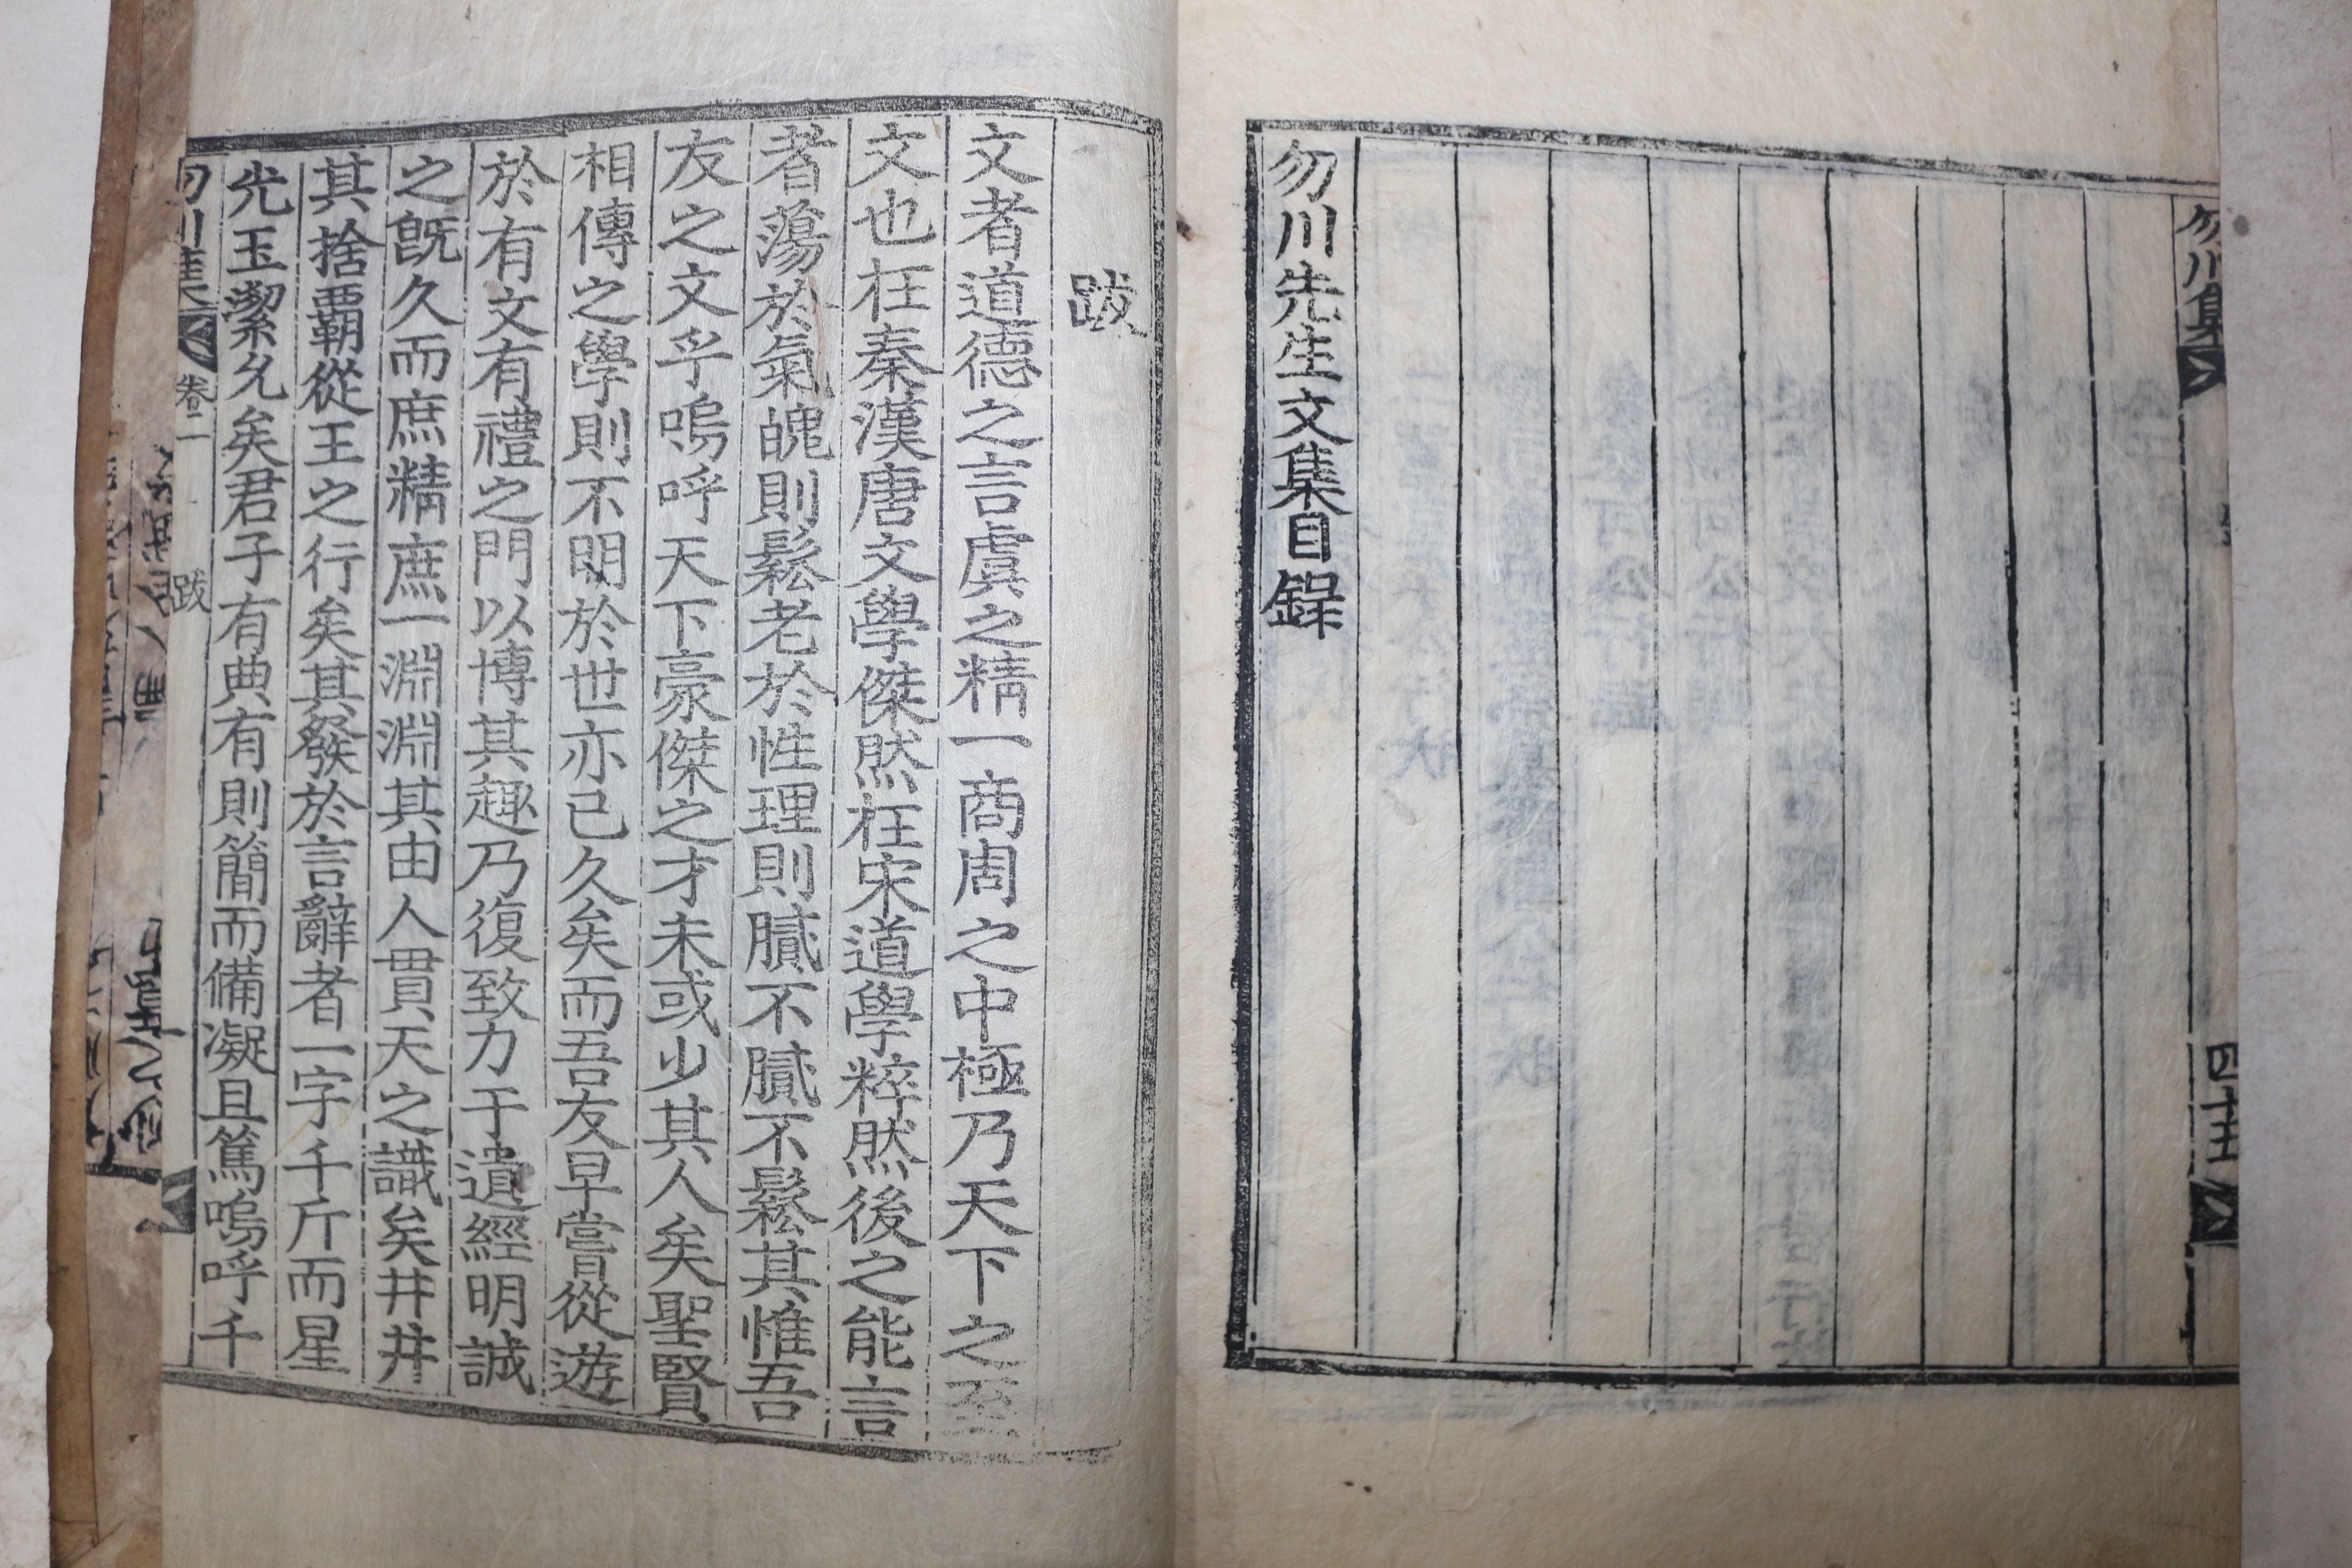 勿川集
四十五
勿川先生文集目錄
跋
文者道德之言虞之精一商周之中極乃天下之至
文也在秦漢唐文學傑然在宋道學粹然後之能言
者蕩於氣魄則鬆老於性理則膩不膩不鬆其惟吾
友之文乎嗚呼天下豪傑之才未或少其人矣聖賢
相傳之學則不明於世亦已久矣而吾友早嘗從遊
於有文有禮之門以博其趣乃復致力于遺經明誠
之旣久而庶精庶一淵淵其由人貫天之識矣井井
其捨覇從王之行矣其發於言辭者一字千斤而星
光玉潔允矣君子有典有則簡而備凝且篤嗚呼千
勿川集
卷二
跋